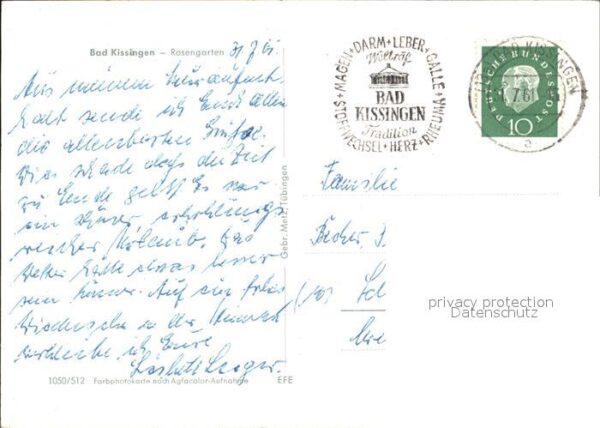 Bad Kissingen – Rosengarten 31.7.61.
Aus meinem Kuraufent-
halt sende ich Euch allen
die allerbesten Grüße.
die Zeit
zu Ende geht. Es war
ein schöner, erholungs-
reicher Urlaub. Das
Wetter hätte etwas besser
sein können. Auf ein frohes
Wiedersehen in der Heimat
verbleibe ich Eure
1050/512 Farbphotokarte nach Agfacolor-Aufnahme EFE
Gebr. Metz, Tübingen
STOFFWECHSEL + MAGEN + DARM + LEBER + GALLE + RHEUMA + HERZ
Weltruf
BAD
KISSINGEN
Tradition
BAD KISSINGEN
7.61
a
DEUTSCHE BUNDESPOST
10
Familie
Becher,
privacy protection
Datenschutz